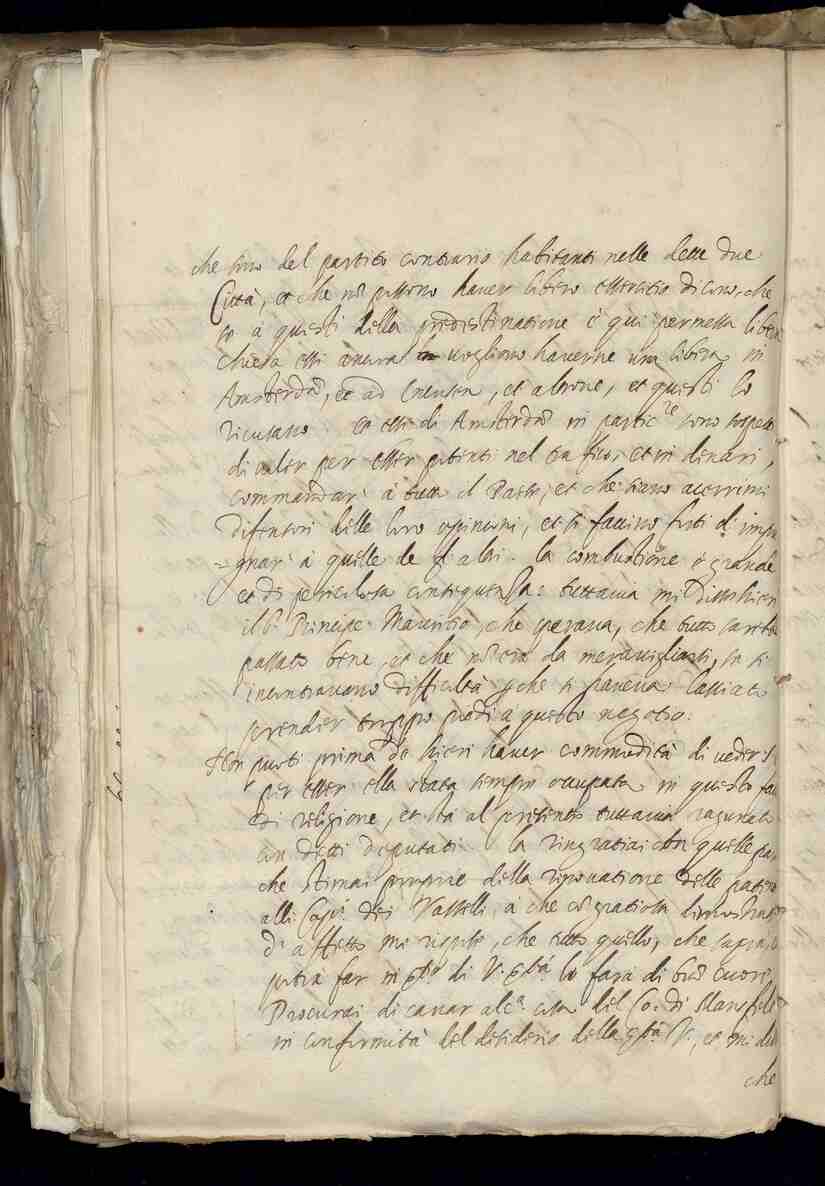 che sono del partito contrario habitanti nelle dette due
Città, et che nõ possono haver libero essercitio dicono, che
se à questi della predestinatione è qui permessa libera
chiesa essi ancora vogliono haverne una libera in
Amsterdã, et ad Encusen, et altrove, et questi lo
ricusano. et essi di Amsterdã in partic.re sono
di voler per esser potenti nel traffico, et in denari,
commandar' à tutto il Paese, et che siano acerrimi
difensori delle loro opinioni, et si faccino forti d'impu
gnar' à quelle de gl'altri. la combustione è grande
et di pericolosa consequenza: tuttavia mi disse hieri
il S.r Principe Mauritio, che sperava, che tutto sarebbe
passato bene, et che nõ era da meravigliarsi, se si
incontravano difficoltà perche si haveva lassiato
prender troppo piedi à questo negotio.
Non puoti prima de hieri haver commodità di veder S.
per esser ella stata sempre occupata in questo fat
di religione, et stà al presente tuttavia ragunata
con detti deputati. la ringratiai con quelle par
che stimai proprie della renovatione delle patenti
alli Cap.i dei Vasselli, à che cõ gratiosa dimostrat
d'affetto mi rispose, che tutto quello, che saprà, e
potrà far in ser.o di V. Ser.tà lo farà di buõ cuore.
Procurai di cavar alc.a cosa del Co: di Mansfelt
in conformità del desiderio della Ser.tà V., et mi disse
che